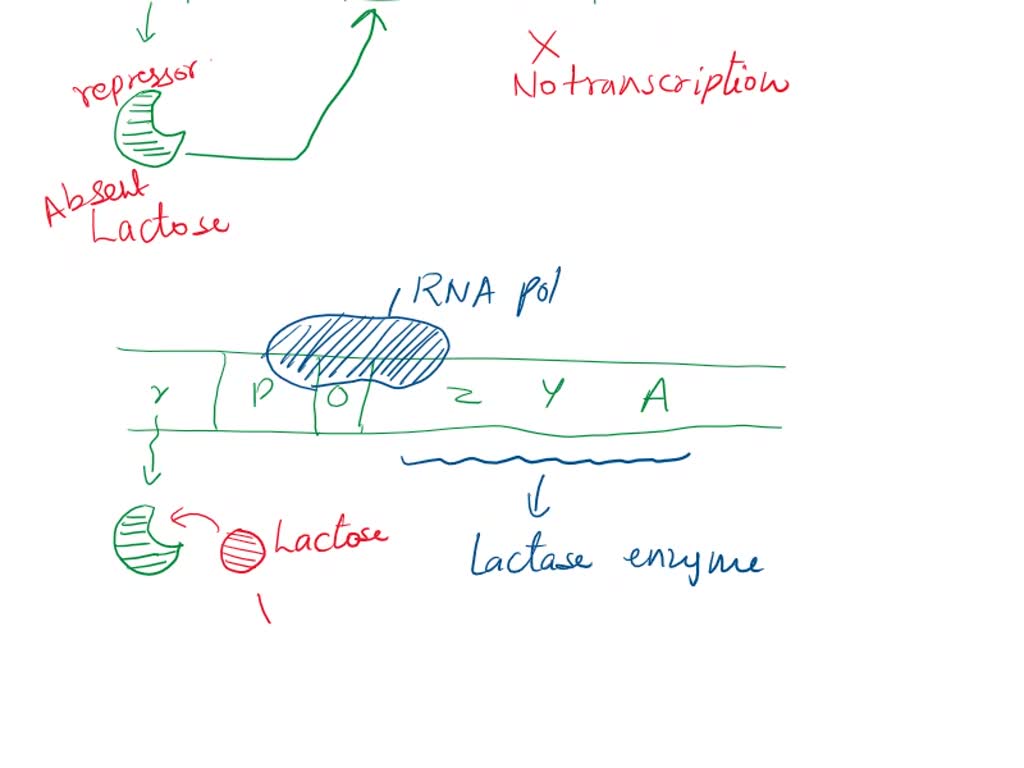 X
No transcription
repressor
Absent
Lactose
RNA pol
r P O Z Y A
Lactose
Lactase enzyme